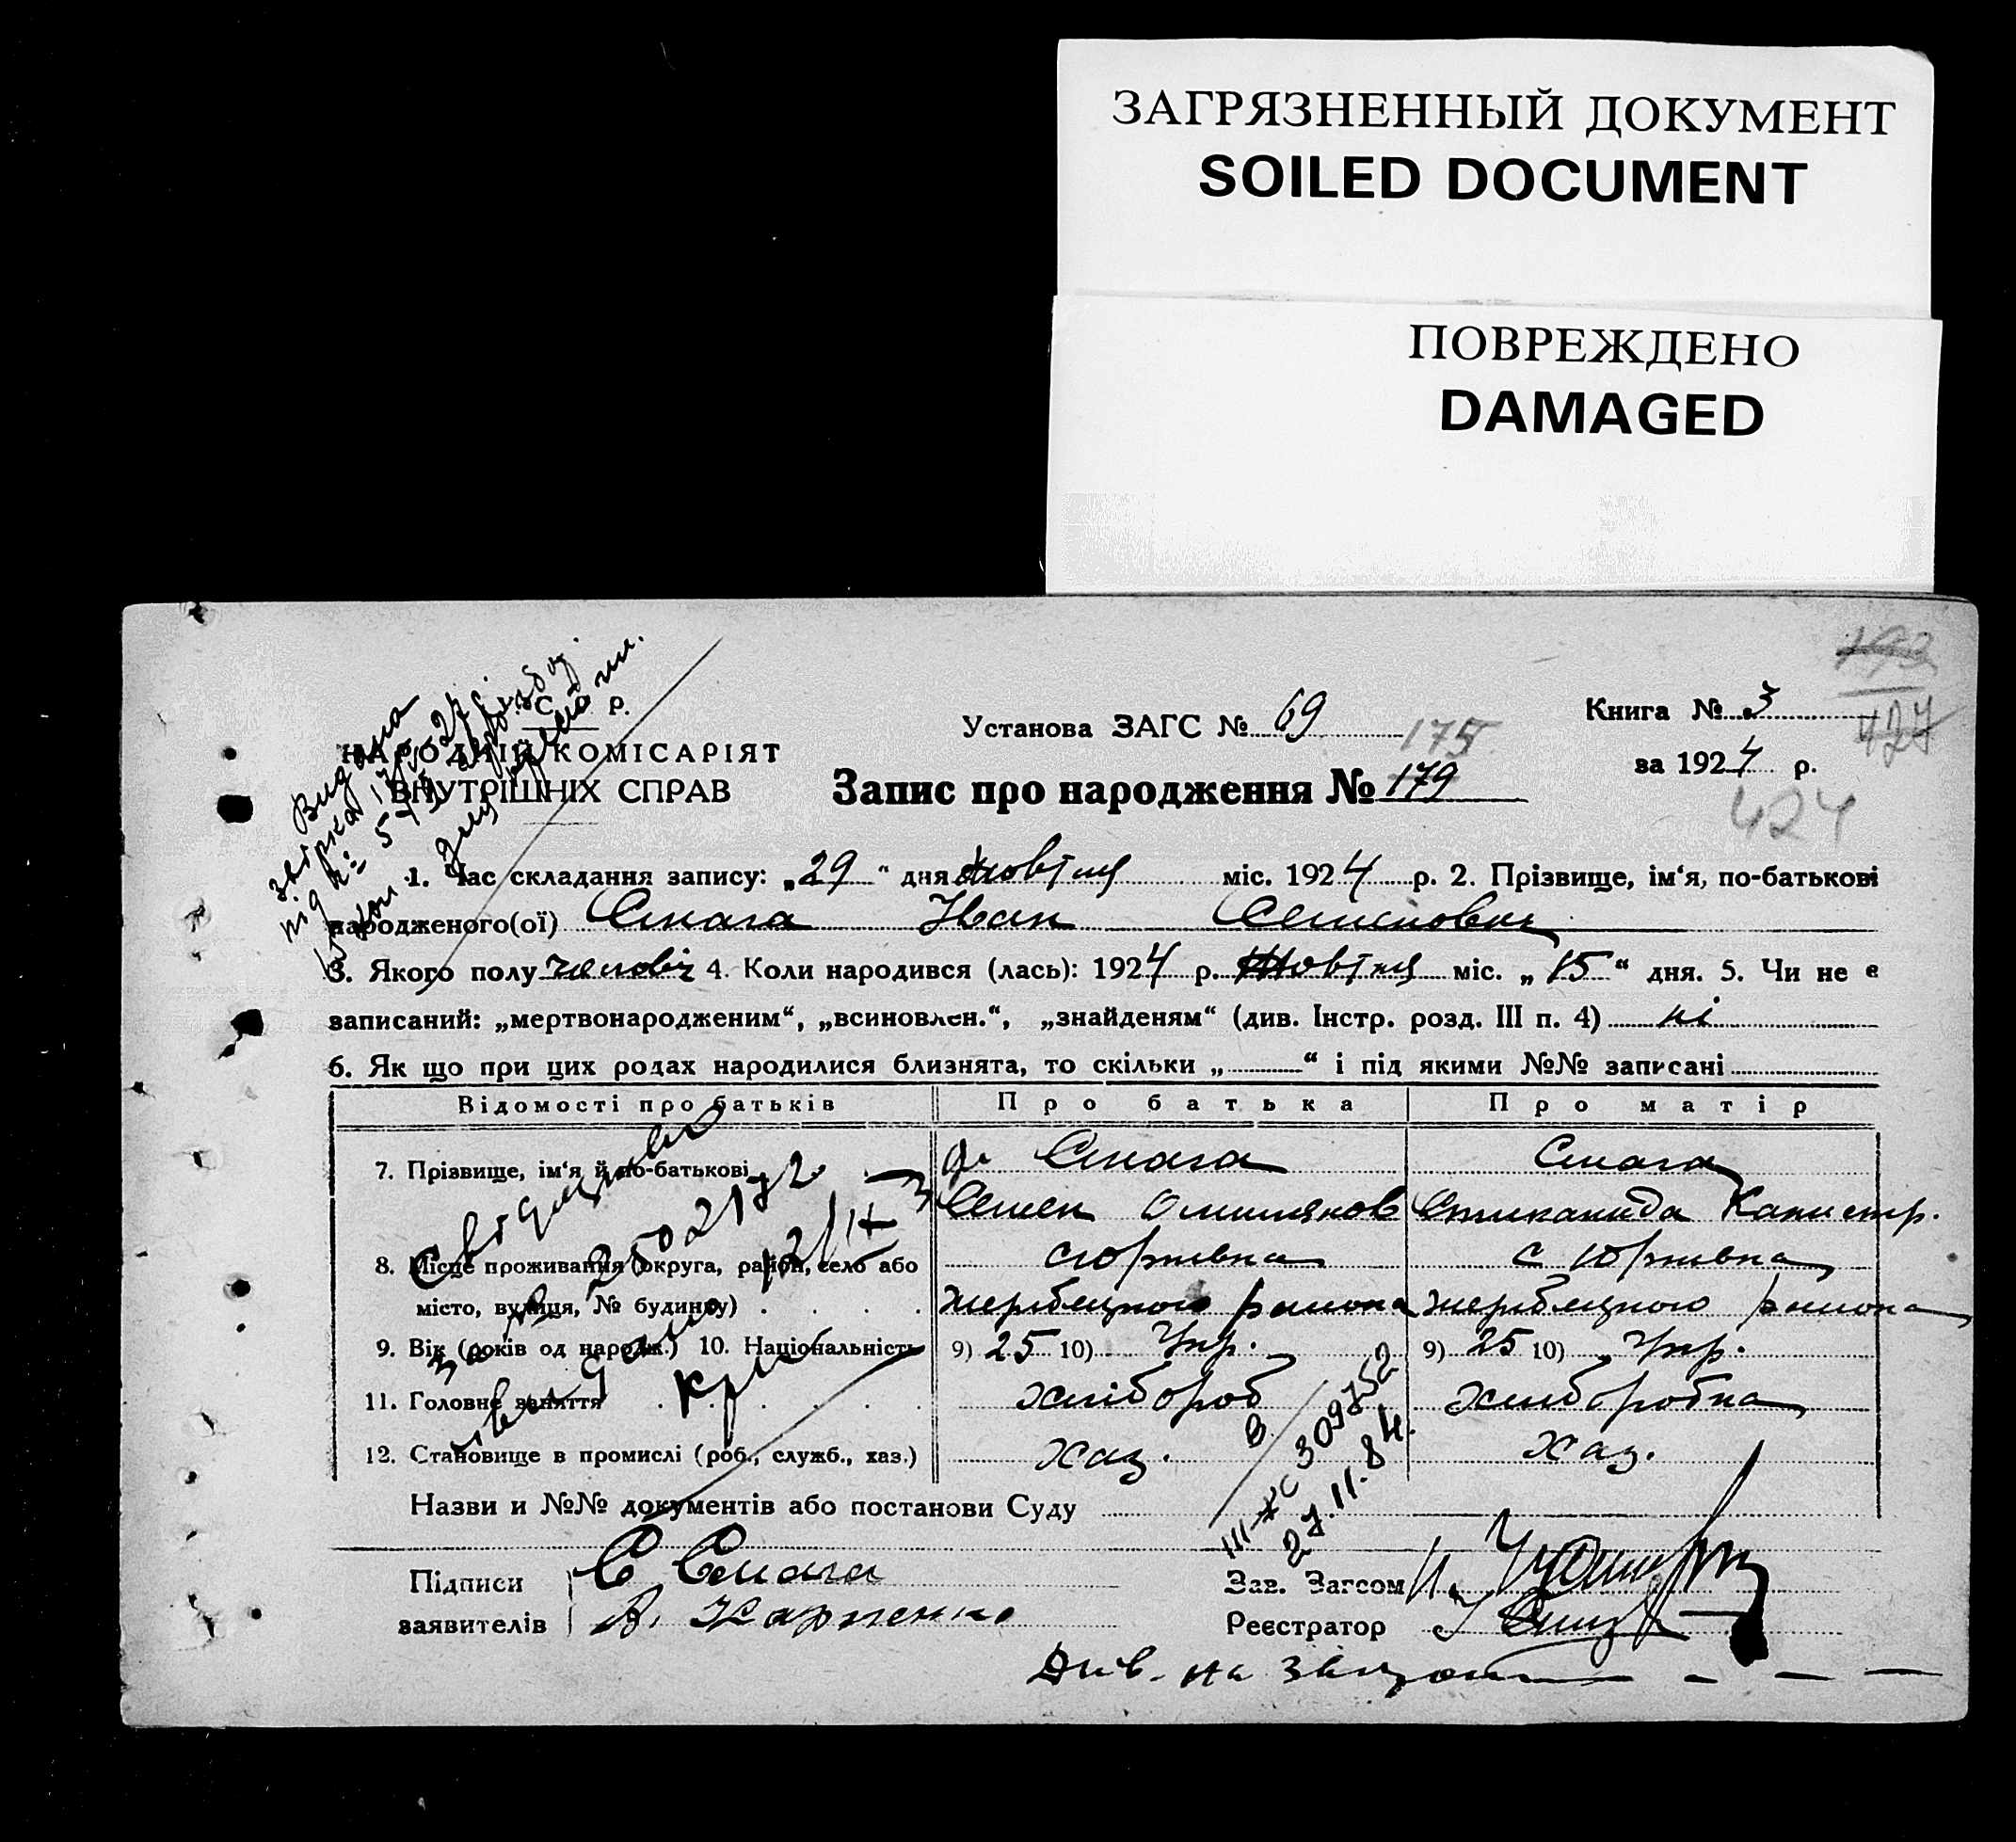 ЗАГРЯЗНЕННЫЙ ДОКУМЕНТ
SOILED DOCUMENT
ПОВРЕЖДЕНО
DAMAGED
193
427
Установа ЗАГС № 69
Книга № 3
НАРОДНІЙ КОМІСАРІЯТ
ВНУТРІШНІХ СПРАВ
175
за 1924 р.
Запис про народження № 179
424
Видана
1. Час складання запису: „29“ дня жовтня міс. 1924 р. 2. Прізвище, ім‘я, по-батькові
народженого(ої) Смага Іван Семенович
3. Якого полу чоловіч 4. Коли народився (лась): 1924 р. Жовтня міс. „15“ дня. 5. Чи не є
записаний: „мертвонародженим“, „всиновлен.“, „знайденям“ (див. Інстр. розд. III п. 4) ні
6. Як що при цих родах народилися близнята, то скільки „ “ і під якими №№ записані
Відомості про батьків Про батька Про матір
7. Прізвище, ім‘я й по-батькові Смага Смага
Семен
8. Місце проживання (округа, район, село або с Юрківка
місто, вулиця, № будинку) жеребецкого района жеребецкого района
9. Вік (років од народж.) 10. Національність 9) 25 10) Укр. 9) 25 10) Укр.
11. Головне заняття хлібороб хлиборобка
12. Становище в промислі (роб., служб., хаз.) хаз. хаз.
Назви и №№ документів або постанови Суду
III-ЖС 309752
27.11.84
Підписи С Смага Зав. Загсом
заявителів Реєстратор
Див. на звороті